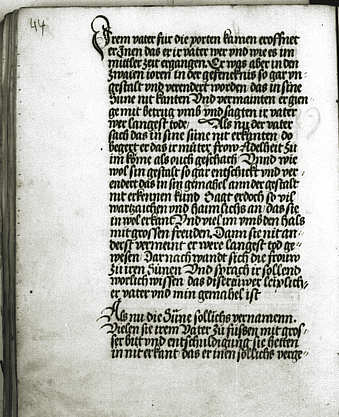 44
Irem vater für die porten kamen eroffnet
er Inen das er ir vater wer vnd wie es im
mitler zeit ergangen. Er was aber in den
zwaien ioren in der gefencknis so gar vn-
gestalt vnd verendert worden das in sine
Süne nit kanten Vnd vermainten er gien
ge mit betrug vmb vnd sagten ir vater
wer langest tode. Als nu der vater
sach das in sine süne nit erkanten do
begert er das ir müter frow Adelheit zu
im köme als ouch geschach Vnnd wie
wol sin gestalt so gar entschickt vnd ver-
endert das in sin gemahel ann der gestalt
mit erkennen kund Sagt er doch so vil
wartzaichen vnd haimlichs an das sie
in wol erkant Vnd viel im vmb den hals
mit grossen freuden. Dann sie nit an-
derst vermeint er were langest tod ge-
wesen Dar nach wandt sich die frouw
zu iren Sünen Vnd sprach ir sollend
worlich wissen das diser üwer leiplich-
er vater vnd min gemahel ist
Als nu die Süne sollichs vernamenn.
Vielen sie irem Vater zu füssen mit gros-
ser bitt vnd entschuldigung sie hetten
in nit erkant das er inen sollichs verge-